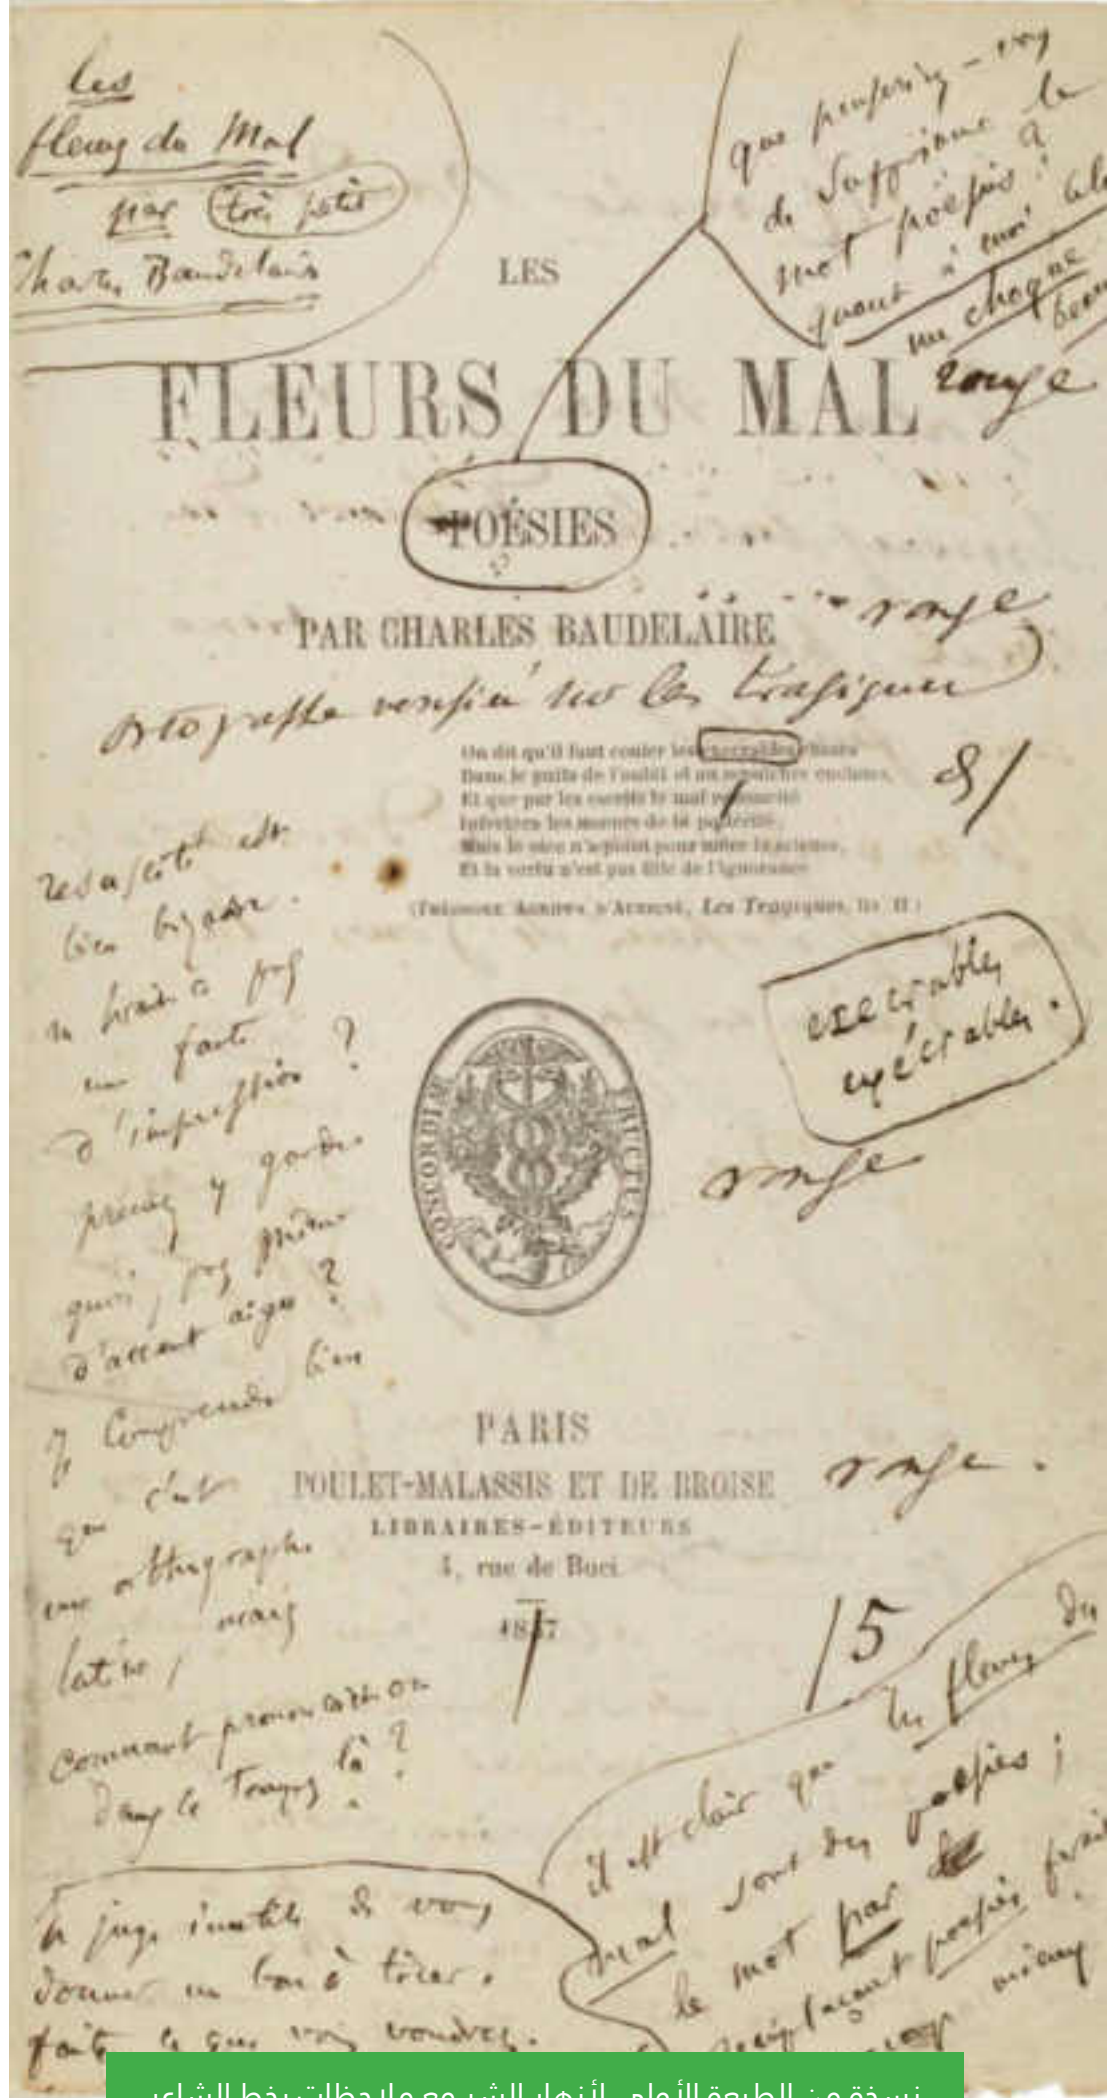 les
fleurs du Mal
par très petit
Charles Baudelaire
que penseriez-vous
de supprimer le
mot poésies ?
quant à moi cela
me choque
rouge
LES
FLEURS DU MAL
POÉSIES
PAR CHARLES BAUDELAIRE
rouge
vérifié sur les tragiques
On dit qu'il faut couler les execrables choses
Dans le puits de l'oubli et au sepulchre encloses,
Et que par les escrits le mal
Infectera les mœurs de la postérité;
Mais le vice n'a point pour mère la science,
Et la vertu n'est pas fille de l'ignorance.
(THÉODORE AGRIPPA D'AUBIGNÉ, Les Tragiques, liv. II.)
est
bien bizarre.
ne serait-ce pas
une faute
d'impression ?
prenez y garde.
quoi, pas même
d'accent aigu ?
je comprends bien
que c'est
une orthographe
latine, mais
comment prononçait-on
dans ce temps là ?
execrables
exécrables.
rouge
CONCORDIÆ FRUCTUS
PARIS
POULET-MALASSIS ET DE BROISE
rouge.
LIBRAIRES-ÉDITEURS
4, rue de Buci
1857
/5
il est clair que les fleurs du
mal sont des poésies ;
le mot par
remplaçant poésies ferait
mieux
Je juge inutile de vous
donner un bon à tirer.
faites ce que vous voudrez.
نسخة من الطبعة الأولى لأزهار الشر مع ملاحظات بخط الشاعر